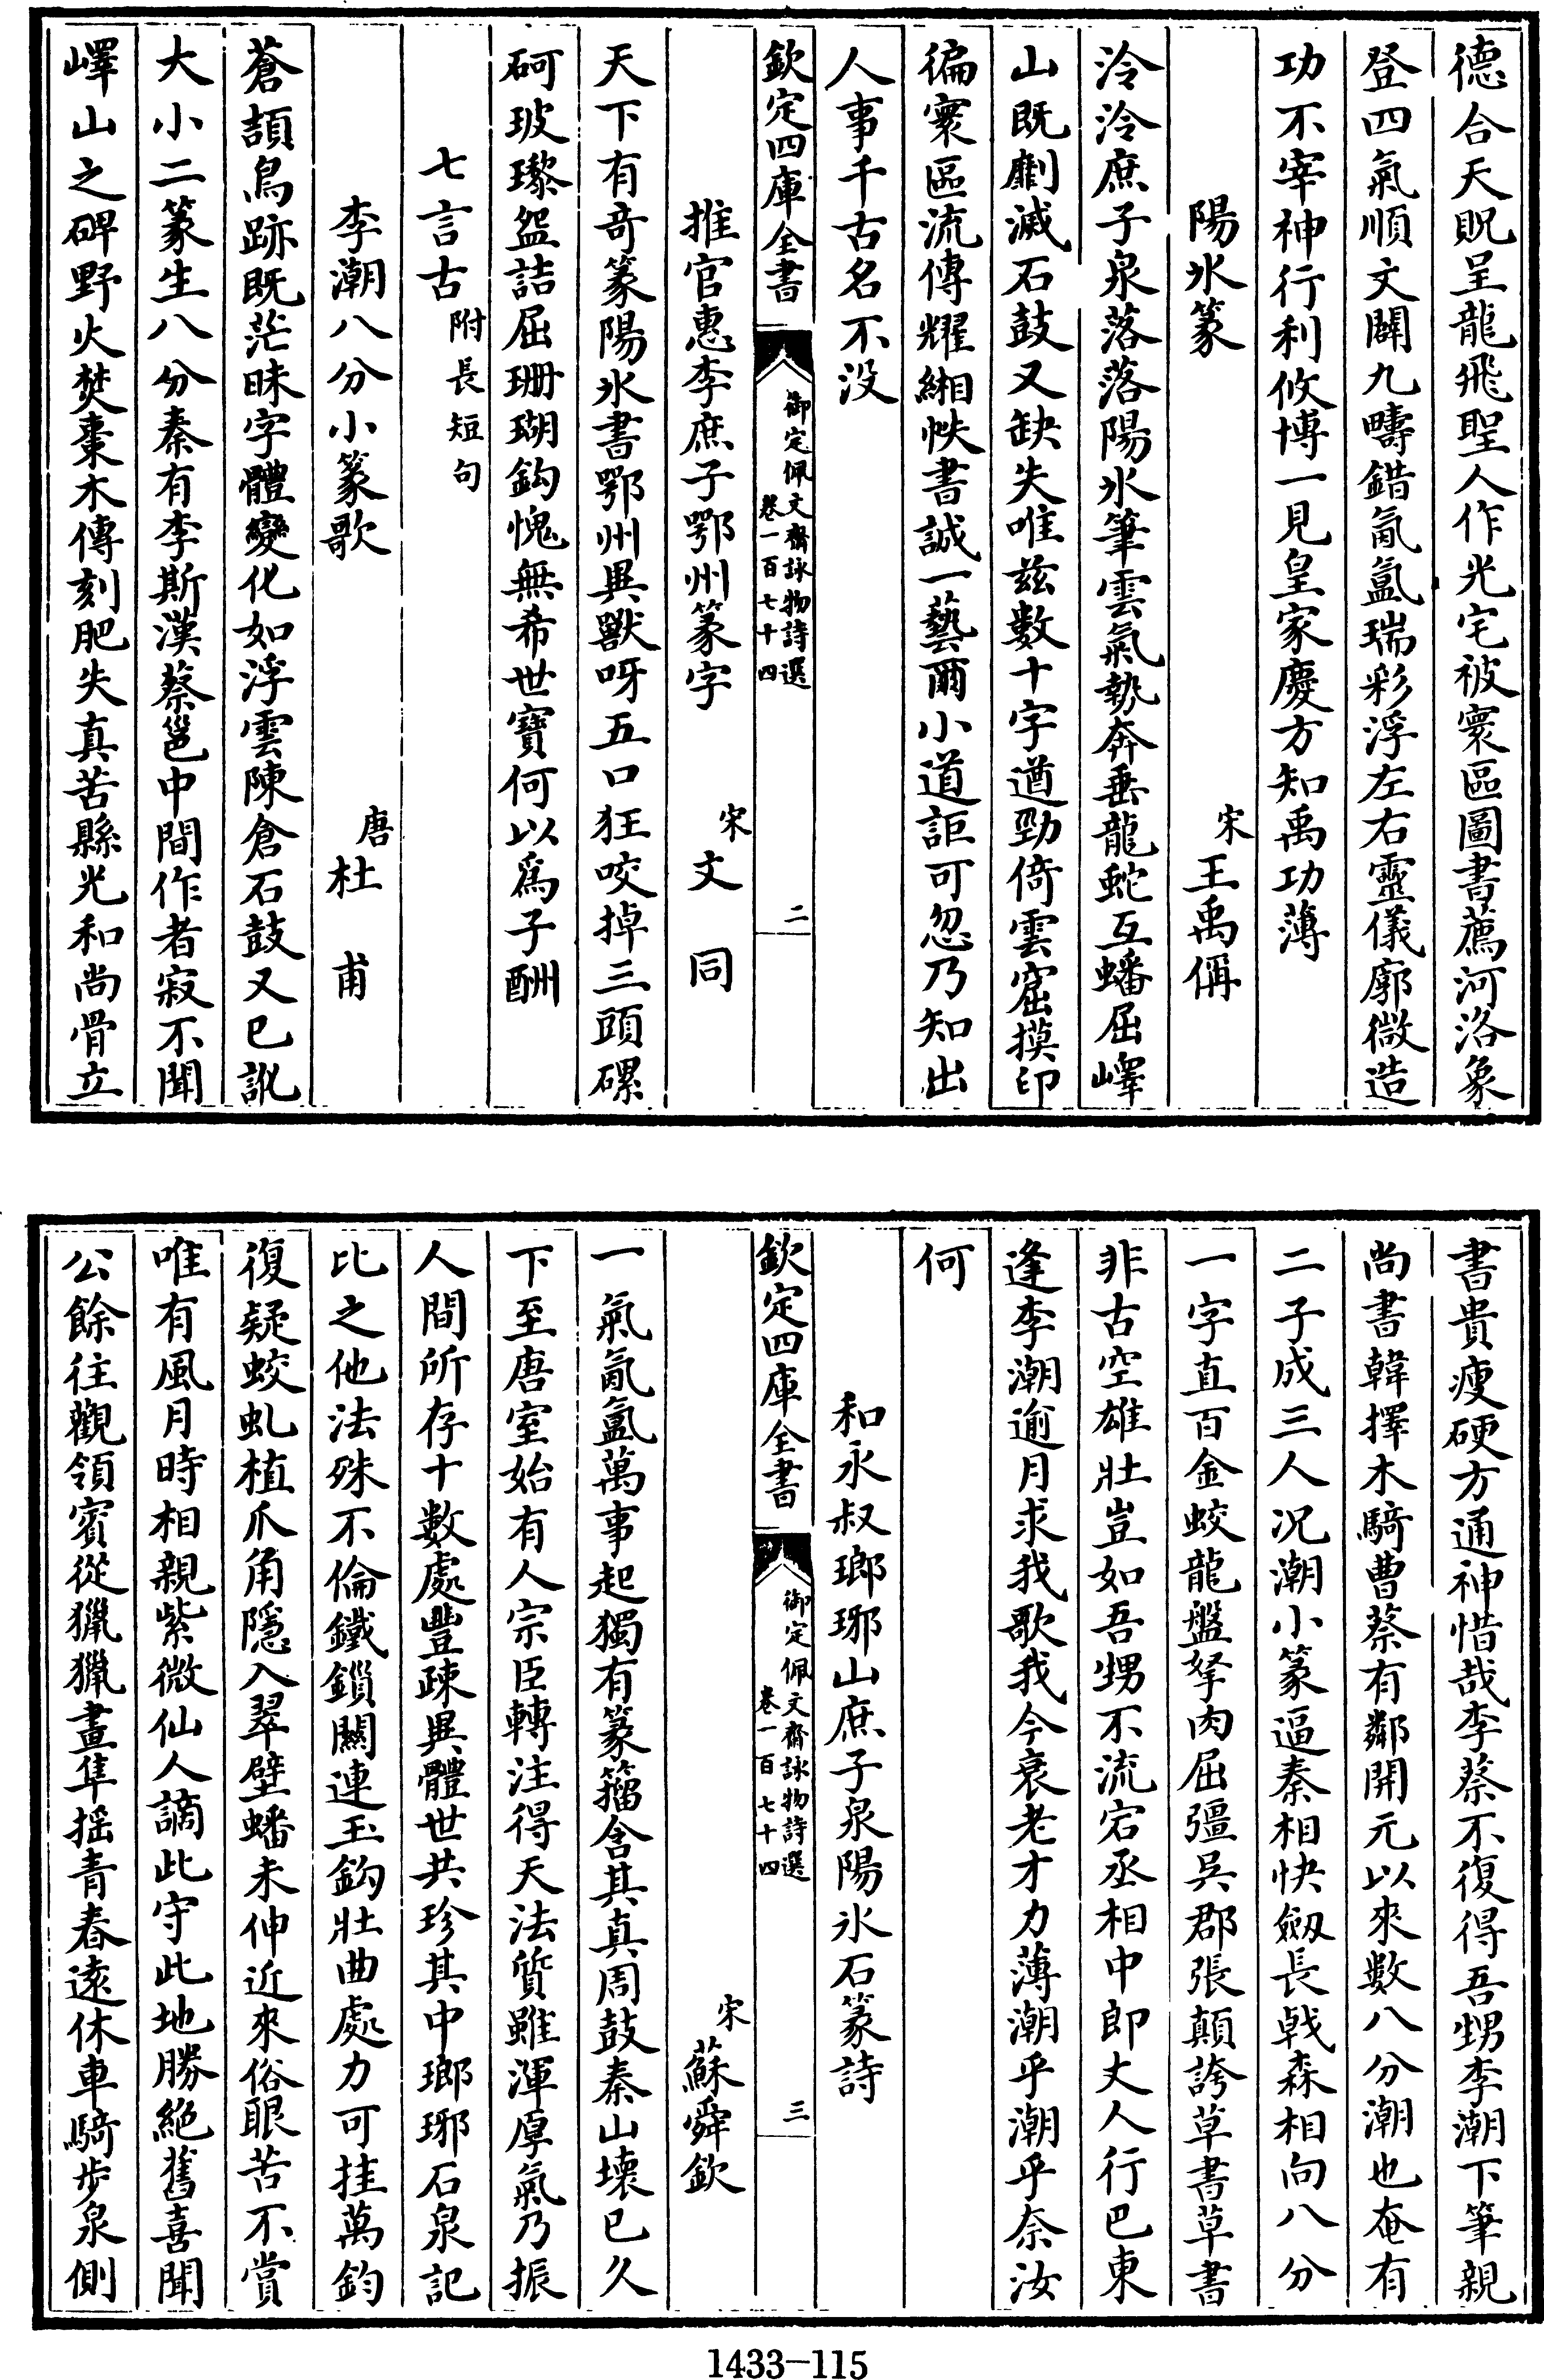 德合天貺呈龍飛聖人作光宅被寰區圖書薦河洛象
登四氣順文闢九疇錯氤氳瑞彩浮左右靈儀廓微造
功不宰神行利攸博一見皇家慶方知禹功薄
陽氷篆
宋
王禹偁
泠泠庶子泉落落陽氷筆雲氣勢奔垂龍蛇互蟠屈嶧
山既劘滅石鼓又缺失唯兹數十字遒勁倚雲窟摸印
徧寰區流傳耀緗帙書誠一藝爾小道詎可忽乃知出
人事千古名不没
欽定四庫全書
御定佩文齋詠物詩選
卷一百七十四
二
推官惠李庶子鄂州篆字
宋
文同
天下有奇篆陽氷書鄂州異獸呀五口狂咬掉三頭磥
砢玻瓈盌詰屈珊瑚鈎愧無希世寶何以為子酬
七言古附長短句
李潮八分小篆歌
唐
杜甫
蒼頡鳥跡既茫昧字體變化如浮雲陳倉石鼓又已訛
大小二篆生八分秦有李斯漢蔡邕中間作者寂不聞
嶧山之碑野火焚棗木傳刻肥失真苦縣光和尚骨立
書貴瘦硬方通神惜哉李蔡不復得吾甥李潮下筆親
尚書韓擇木騎曹蔡有鄰開元以來數八分潮也奄有
二子成三人况潮小篆逼秦相快劔長戟森相向八分
一字直百金蛟龍盤拏肉屈彊吳郡張顛誇草書草書
非古空雄壯豈如吾甥不流宕丞相中郎丈人行巴東
逢李潮逾月求我歌我今衰老才力薄潮乎潮乎奈汝
何
和永叔瑯琊山庶子泉陽氷石篆詩
欽定四庫全書
御定佩文齋詠物詩選
卷一百七十四
三
宋
蘇舜欽
一氣氤氳萬事起獨有篆籀含其真周鼓秦山壞已久
下至唐室始有人宗臣轉注得天法質雖渾厚氣乃振
人間所存十數處豐疎異體世共珍其中瑯琊石泉記
比之他法殊不倫鐵鎖關連玉鈎壯曲處力可挂萬鈞
復疑蛟虬植爪角隱入翠壁蟠未伸近來俗眼苦不賞
唯有風月時相親紫微仙人謫此守此地勝絶舊喜聞
公餘往觀領賓從獵獵畫隼揺青春遠休車騎步泉側
1433—115